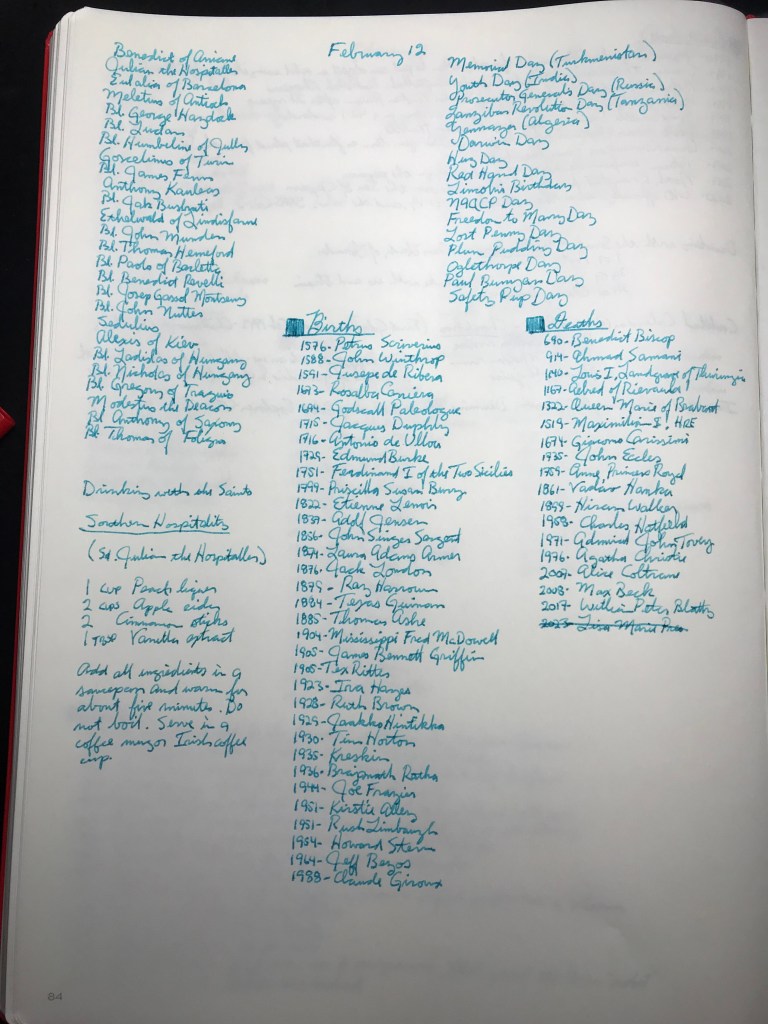 February 12
Benedict of Aniane
Julian the Hospitaller
Eulalia of Barcelona
Meletius of Antioch
Bl. George Haydock
Bl. Ludan
Bl. Humbeline of Jully
Goscelinus of Turin
Bl. James Fenn
Anthony Kauleas
Bl. Jak Bushati
Ethelwald of Lindisfarne
Bl. John Munden
Bl. Thomas Hemerford
Bl. Paolo of Barletta
Bl. Benedict Revelli
Bl. Josep Gassol Montseny
Bl. John Nutter
Sedulius
Alexis of Kiev
Bl. Ladislas of Hungary
Bl. Nicholas of Hungary
Bl. Gregory of
Modestus the Deacon
Bl. Anthony of Saxony
Bl. Thomas of Foligno
Drinking with the Saints
Southern Hospitality
(St. Julian the Hospitaller)
1 cup Peach
2 cups Apple cider
2 Cinnamon sticks
1 Vanilla extract
Add all ingredients in a
saucepan and warm for
about five minutes. Do
not boil. Serve in a
coffee mug or Irish coffee
cup
Memorial Day (Turkmenistan)
Youth Day (India)
Prosecutor General's Day (Russia)
Zanzibar Revolution Day (Tanzania)
Yennayer (Algeria)
Darwin Day
Hug Day
Red Hand Day
Lincoln's Birthday
NAACP Day
Freedom to Marry Day
Lost Penny Day
Plum Pudding Day
Oglethorpe Day
Paul Bunyan Day
Safety Pup Day
Births
1576- Petrus Scriverius
1588- John Winthrop
1591- Jusepe de Ribera
1673- Rosalba Carriera
1694- Godscall Paleologue
1715- Jacques Duphly
1716- Antonio de Ulloa
1729- Edmund Burke
1751- Ferdinand I of the Two Sicilies
1799- Priscilla Susan Bury
1822- Etienne Lenoir
1837- Adolf Jensen
1856- John Singer Sargent
1874- Laura Adams Armer
1876- Jack London
1879- Ray Harroun
1884- Texas Guinan
1885- Thomas Ashe
1904- Mississippi Fred McDowell
1905- James Bennett Griffin
1905- Tex Ritter
1923- Ira Hayes
1928- Ruth Brown
1929- Jaakko Hintikka
1930- Tim Horton
1935- Kreskin
1936-
1944- Joe Frazier
1951- Kirstie Alley
1951- Rush Limbaugh
1954- Howard Stern
1964- Jeff Bezos
1988- Claude Giroux
Deaths
690- Benedict Biscop
914- Ahmad Samani
1140- Louis I, Landgrave of Thuringia
1167- Aelred of Rievaulx
1322- Queen Marie of Brabant
1519- Maximilian I, HRE
1674- Giacomo Carissimi
1735- John Eccles
1759- Anne, Princess Royal
1861- Vaclav Hanka
1899- Hiram Walker
1958- Charles Hatfield
1971- Admiral John Tovey
1976- Agatha Christie
2007- Alice Coltrane
2008- Max Beck
2017- William Peter Blatty
2023- Lisa Marie Pres
84